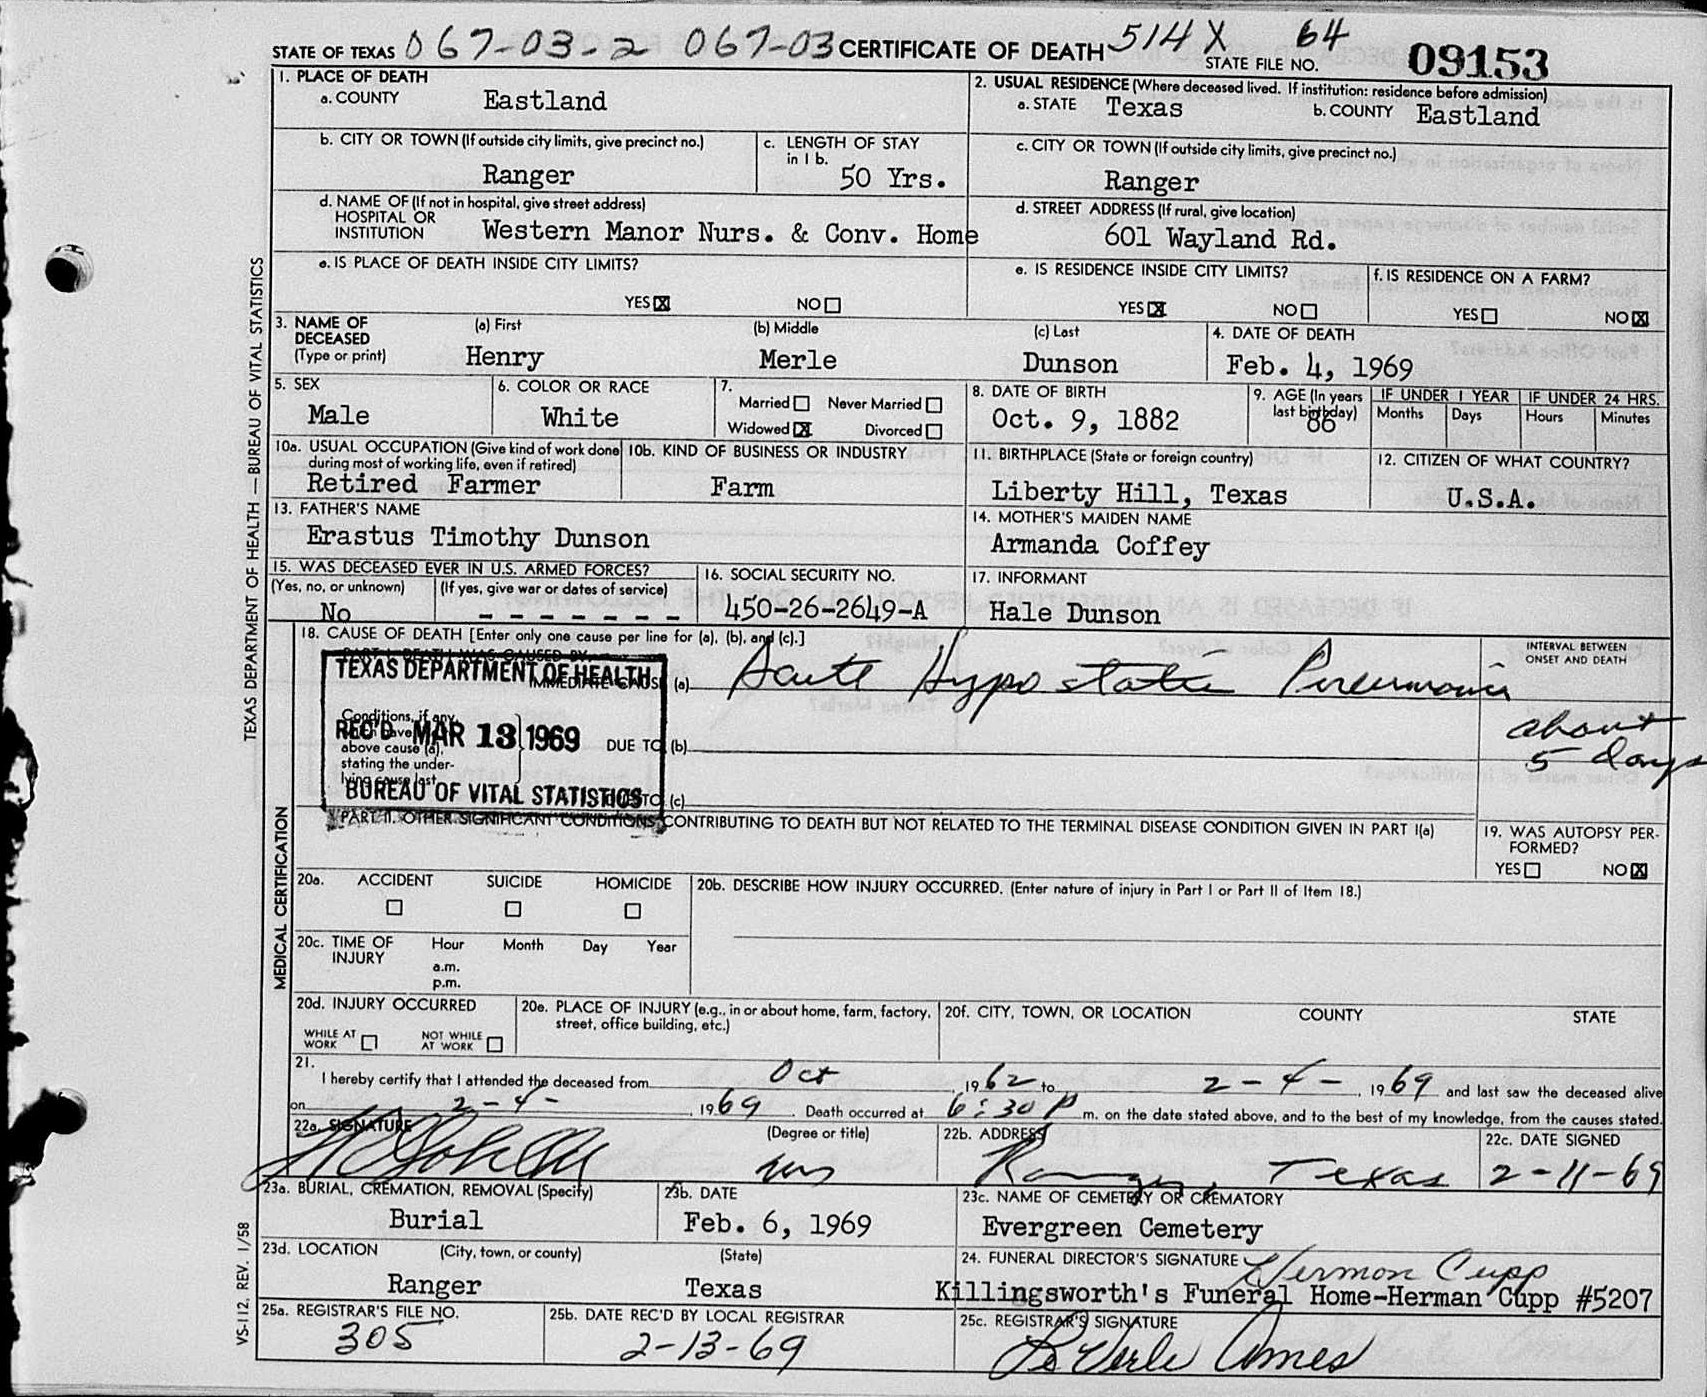 STATE OF TEXAS 067-03-2 067-03 CERTIFICATE OF DEATH 514 X 64 STATE FILE NO. 09153
1. PLACE OF DEATH
a. COUNTY Eastland
2. USUAL RESIDENCE (Where deceased lived. If institution: residence before admission)
a. STATE Texas b. COUNTY Eastland
b. CITY OR TOWN (If outside city limits, give precinct no.)
Ranger
c. LENGTH OF STAY
in 1 b.
50 Yrs.
c. CITY OR TOWN (If outside city limits, give precinct no.)
Ranger
d. NAME OF (If not in hospital, give street address)
HOSPITAL OR
INSTITUTION Western Manor Nurs. & Conv. Home
d. STREET ADDRESS (If rural, give location)
601 Wayland Rd.
e. IS PLACE OF DEATH INSIDE CITY LIMITS?
YES X NO
e. IS RESIDENCE INSIDE CITY LIMITS?
YES X NO
f. IS RESIDENCE ON A FARM?
YES NO X
3. NAME OF
DECEASED
(Type or print)
(a) First (b) Middle (c) Last
Henry Merle Dunson
4. DATE OF DEATH
Feb. 4, 1969
5. SEX
Male
6. COLOR OR RACE
White
7.
Married Never Married
Widowed X Divorced
8. DATE OF BIRTH
Oct. 9, 1882
9. AGE (In years
last birthday)
86
IF UNDER 1 YEAR IF UNDER 24 HRS.
Months Days Hours Minutes
10a. USUAL OCCUPATION (Give kind of work done
during most of working life, even if retired)
Retired Farmer
10b. KIND OF BUSINESS OR INDUSTRY
Farm
11. BIRTHPLACE (State or foreign country)
Liberty Hill, Texas
12. CITIZEN OF WHAT COUNTRY?
U.S.A.
13. FATHER'S NAME
Erastus Timothy Dunson
14. MOTHER'S MAIDEN NAME
Armanda Coffey
15. WAS DECEASED EVER IN U.S. ARMED FORCES?
(Yes, no, or unknown) (If yes, give war or dates of service)
No - - - - - - -
16. SOCIAL SECURITY NO.
450-26-2649-A
17. INFORMANT
Hale Dunson
18. CAUSE OF DEATH [Enter only one cause per line for (a), (b), and (c).]
PART I. DEATH WAS CAUSED BY
IMMEDIATE CAUSE (a) Acute Hypostatic Pneumonia
INTERVAL BETWEEN
ONSET AND DEATH
about
5 days
TEXAS DEPARTMENT OF HEALTH
REC'D MAR 13 1969
BUREAU OF VITAL STATISTICS
Conditions, if any,
which gave
above cause (a),
stating the under-
lying cause last.
DUE TO (b)
DUE TO (c)
PART II. OTHER SIGNIFICANT CONDITIONS CONTRIBUTING TO DEATH BUT NOT RELATED TO THE TERMINAL DISEASE CONDITION GIVEN IN PART I(a)
19. WAS AUTOPSY PER-
FORMED?
YES NO X
20a. ACCIDENT SUICIDE HOMICIDE
20b. DESCRIBE HOW INJURY OCCURRED. (Enter nature of injury in Part I or Part II of Item 18.)
20c. TIME OF
INJURY
Hour Month Day Year
a.m.
p.m.
20d. INJURY OCCURRED
WHILE AT
WORK
NOT WHILE
AT WORK
20e. PLACE OF INJURY (e.g., in or about home, farm, factory,
street, office building, etc.)
20f. CITY, TOWN, OR LOCATION COUNTY STATE
21.
I hereby certify that I attended the deceased from Oct, 1962 to 2-4-, 1969 and last saw the deceased alive
on 2-4-, 1969. Death occurred at 6:30 P m. on the date stated above, and to the best of my knowledge, from the causes stated.
22a. SIGNATURE
(Degree or title)
22b. ADDRESS
Ranger, Texas
22c. DATE SIGNED
2-11-69
23a. BURIAL, CREMATION, REMOVAL (Specify)
Burial
23b. DATE
Feb. 6, 1969
23c. NAME OF CEMETERY OR CREMATORY
Evergreen Cemetery
23d. LOCATION (City, town, or county) (State)
Ranger Texas
24. FUNERAL DIRECTOR'S SIGNATURE Herman Cupp
Killingsworth's Funeral Home-Herman Cupp #5207
25a. REGISTRAR'S FILE NO.
305
25b. DATE REC'D BY LOCAL REGISTRAR
2-13-69
25c. REGISTRAR'S SIGNATURE
LaVerle Ames
TEXAS DEPARTMENT OF HEALTH — BUREAU OF VITAL STATISTICS
MEDICAL CERTIFICATION
VS-112, REV. 1/58